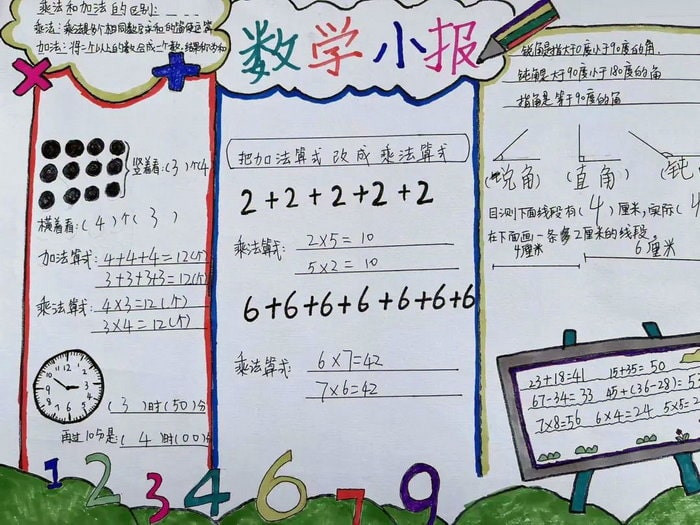 乘法和加法的区别:
乘法:乘法是多个相同数字求和的简便运算
加法:得二个以上的数合成一个数,结果称为和
×
+
竖着看:(3)个(4
横着看:(4)个(3)
加法算式:4+4+4=12(个)
3+3+3+3=12(个)
乘法算式:4×3=12(个)
3×4=12(个)
12 1 2 3 4 5 6 7 8 9 10 11
(3)时(50)分
再过10分是(4)时(00)分
数学小报
把加法算式改成乘法算式
2+2+2+2+2
乘法算式:2×5=10
5×2=10
6+6+6+6+6+6+6
乘法算式:6×7=42
7×6=42
锐角是指大于0度小于90度的角.
钝角是大于90度小于180度的角
指角是等于90度的角
(锐角)
(直角)
(钝
目测下面线段有(4)厘米,实际(4
在下面画一条多2厘米的线段。
4厘米
6厘米
23+18=41 15+35=50
67-34=33 45+(36-28)=5
7×8=56 6×4=24 5×5=2
1 2 3 4 6 7 9